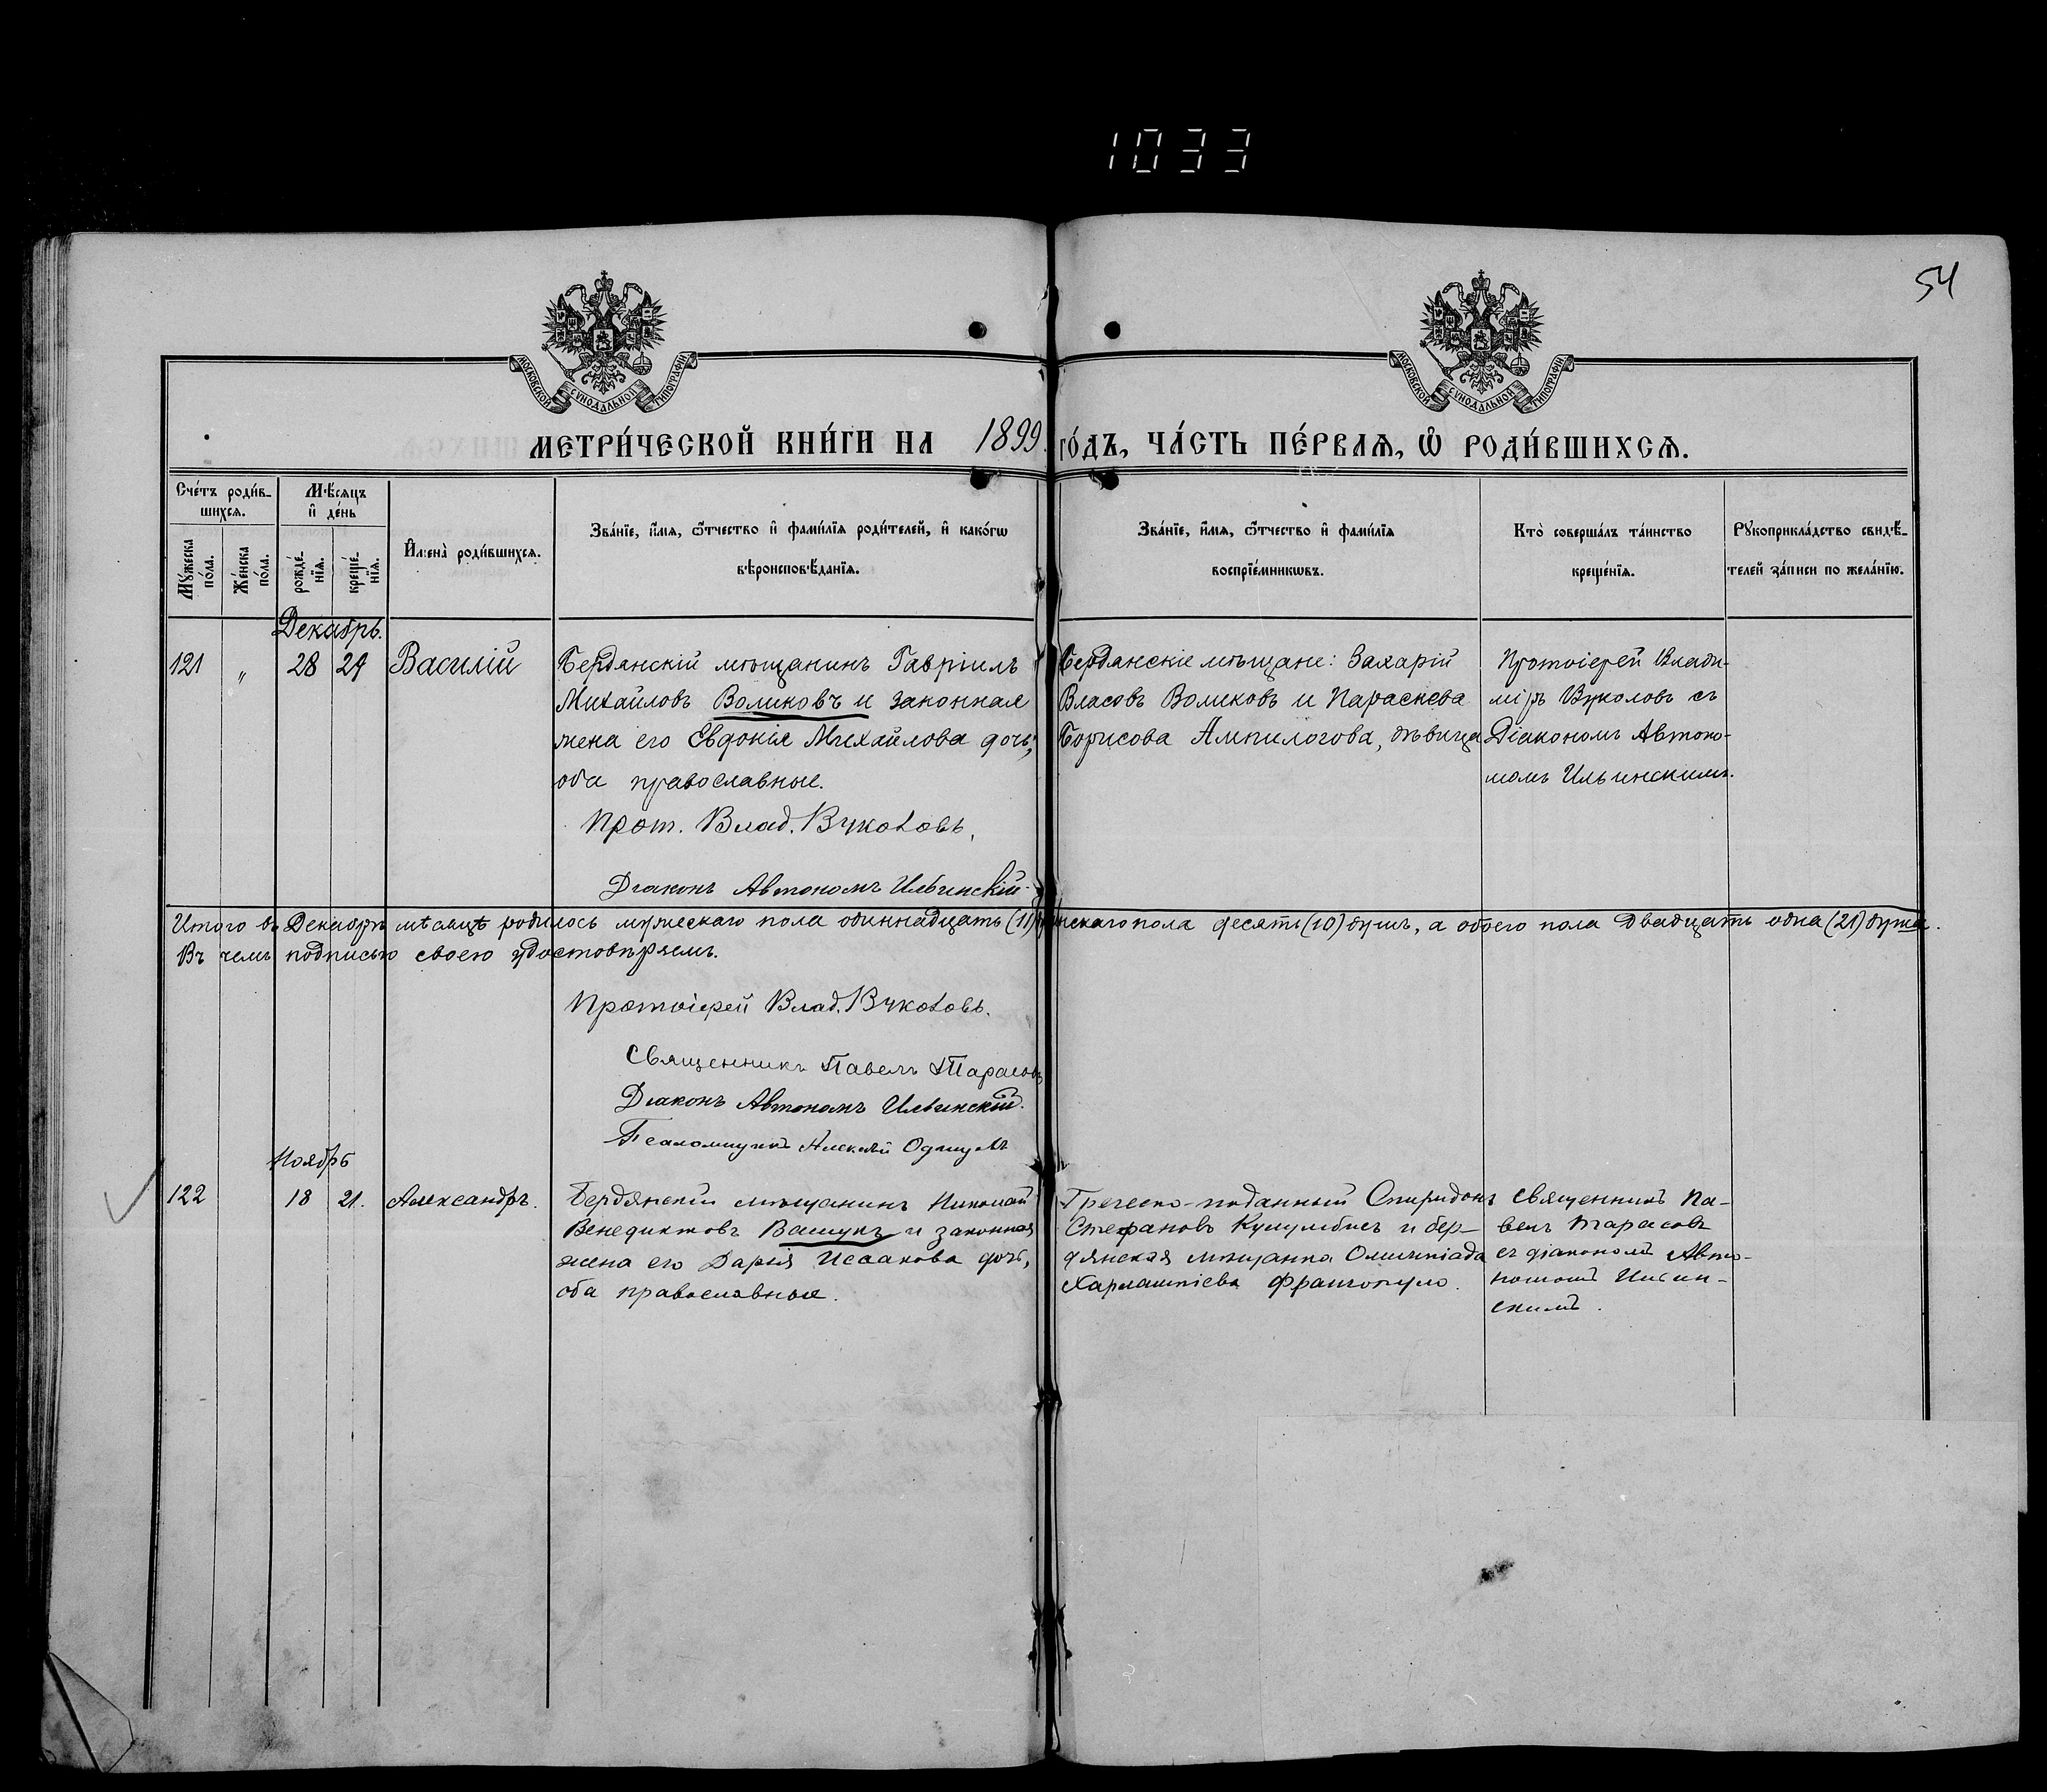 1033
54
МОСКОВСКОЙ СѴНОДАЛЬНОЙ ТИПОГРАФІИ
МОСКОВСКОЙ СѴНОДАЛЬНОЙ ТИПОГРАФІИ
МЕТРИ́ЧЕСКОЙ КНИ́ГИ НА 1899 ГО́ДЪ, ЧА́СТЬ ПЕ́РВАѦ, Ѡ҆ РОДИ́ВШИХСѦ.
Сче́тъ роди́в-
шихсѧ.
Мꙋ́жеска
по́ла.
Же́нска
по́ла.
Мѣ́сяцъ
и҆ де́нь
рожде́-
нїѧ.
креще́-
нїѧ.
И҆мена̀ роди́вшихсѧ.
Зва́нїе, и҆́мѧ, ѻ҆́тчество и҆ фами́лїѧ роди́телей, и҆ како́гѡ
вѣроисповѣ́данїѧ.
Зва́нїе, и҆́мѧ, ѻ҆́тчество и҆ фами́лїѧ
воспрїе́мникѡвъ.
Кто̀ соверша́лъ та́инство
креще́нїѧ.
Рꙋкоприкла́дство свидѣ́-
телей за́писи по жела́нїю.
Декабрь.
121 " 28 29 Василій
Бердянскій мѣщанинъ Гавріилъ
Михайловъ Воликовъ и законная
жена его Евдокія Михайлова дочь,
оба православные.
Прот. Влад. Вуколовъ.
Діаконъ Автономъ Ильинскій.
Бердянскіе мѣщане: Захарій
Власовъ Воликовъ и Параскева
Борисова Ампилогова, дѣвица
Протоіерей Влади-
міръ Вуколовъ съ
Діакономъ Автоно-
момъ Ильинскимъ.
Итого въ Декабрѣ мѣсяцѣ родилось мужескаго пола одиннадцать (11) женскаго пола десять (10) душъ, а обоего пола двадцать одна (21) душа.
Въ чемъ подписью своею удостовѣряемъ.
Протоіерей Влад. Вуколовъ.
Священникъ Павелъ Тарасовъ
Діаконъ Автономъ Ильинскій.
Псаломщикъ Алексѣй
Ноябрь
122 18 21. Александръ.
Бердянскій мѣщанинъ Николай
Венедиктовъ Ващукъ и законная
жена его Дарія Исаакова дочь,
оба православные.
Греческо-поданный Спиридонъ
Стефановъ и бер-
дянская мѣщанка Олимпіада
Харлампіева Франгопуло.
Священникъ Па-
велъ Тарасовъ
съ діакономъ Авто-
номомъ Ильин-
скимъ.